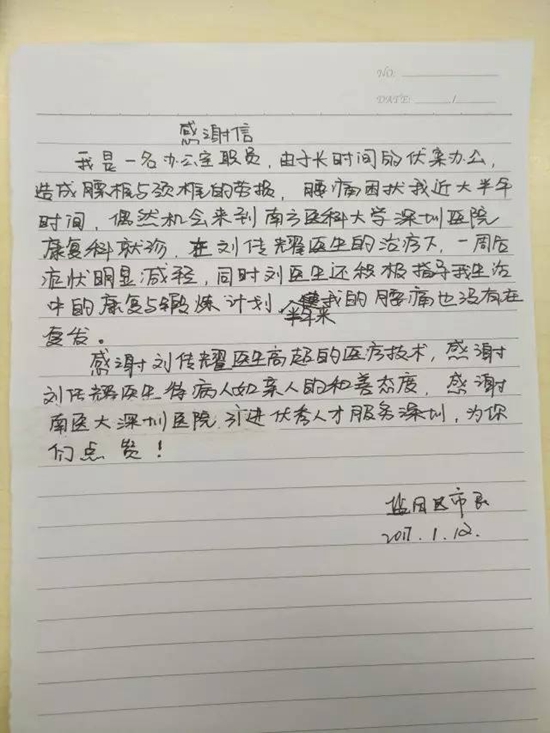 NO:
DATE: /
感谢信
我是一名办公室职员，由于长时间的伏案办公，
造成腰椎与颈椎的劳损，腰痛困扰我近大半年
时间，偶然机会来到南方医科大学深圳医院
康复科就诊，在刘传耀医生的治疗下，一周后
症状明显减轻，同时刘医生还积极指导我生活
中的康复与锻炼计划，半年来我的腰痛也没有在
复发。
感谢刘传耀医生高超的医疗技术，感谢
刘传耀医生待病人如亲人的和善态度，感谢
南医大深圳医院引进优秀人才服务深圳，为你
们点赞！
盐田区市民
2017.1.12.